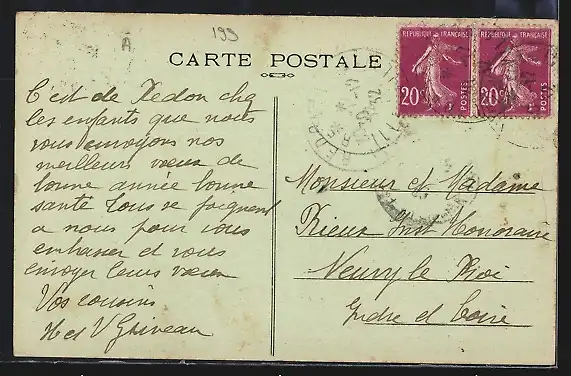 199
A
CARTE POSTALE
REPUBLIQUE FRANÇAISE
20c
POSTES
REPUBLIQUE FRANÇAISE
20c
POSTES
REDON
C'est de Redon chez
les enfants que nous
vous envoyons nos
meilleurs vœux de
bonne année bonne
santé tous se joignent
a nous pour vous
embrasser et vous
envoyer leurs vœux
Vos cousins
H et V Griveau
Monsieur et Madame
Rieux Inst Honoraire
Neuvy le Roi
Indre et Loire